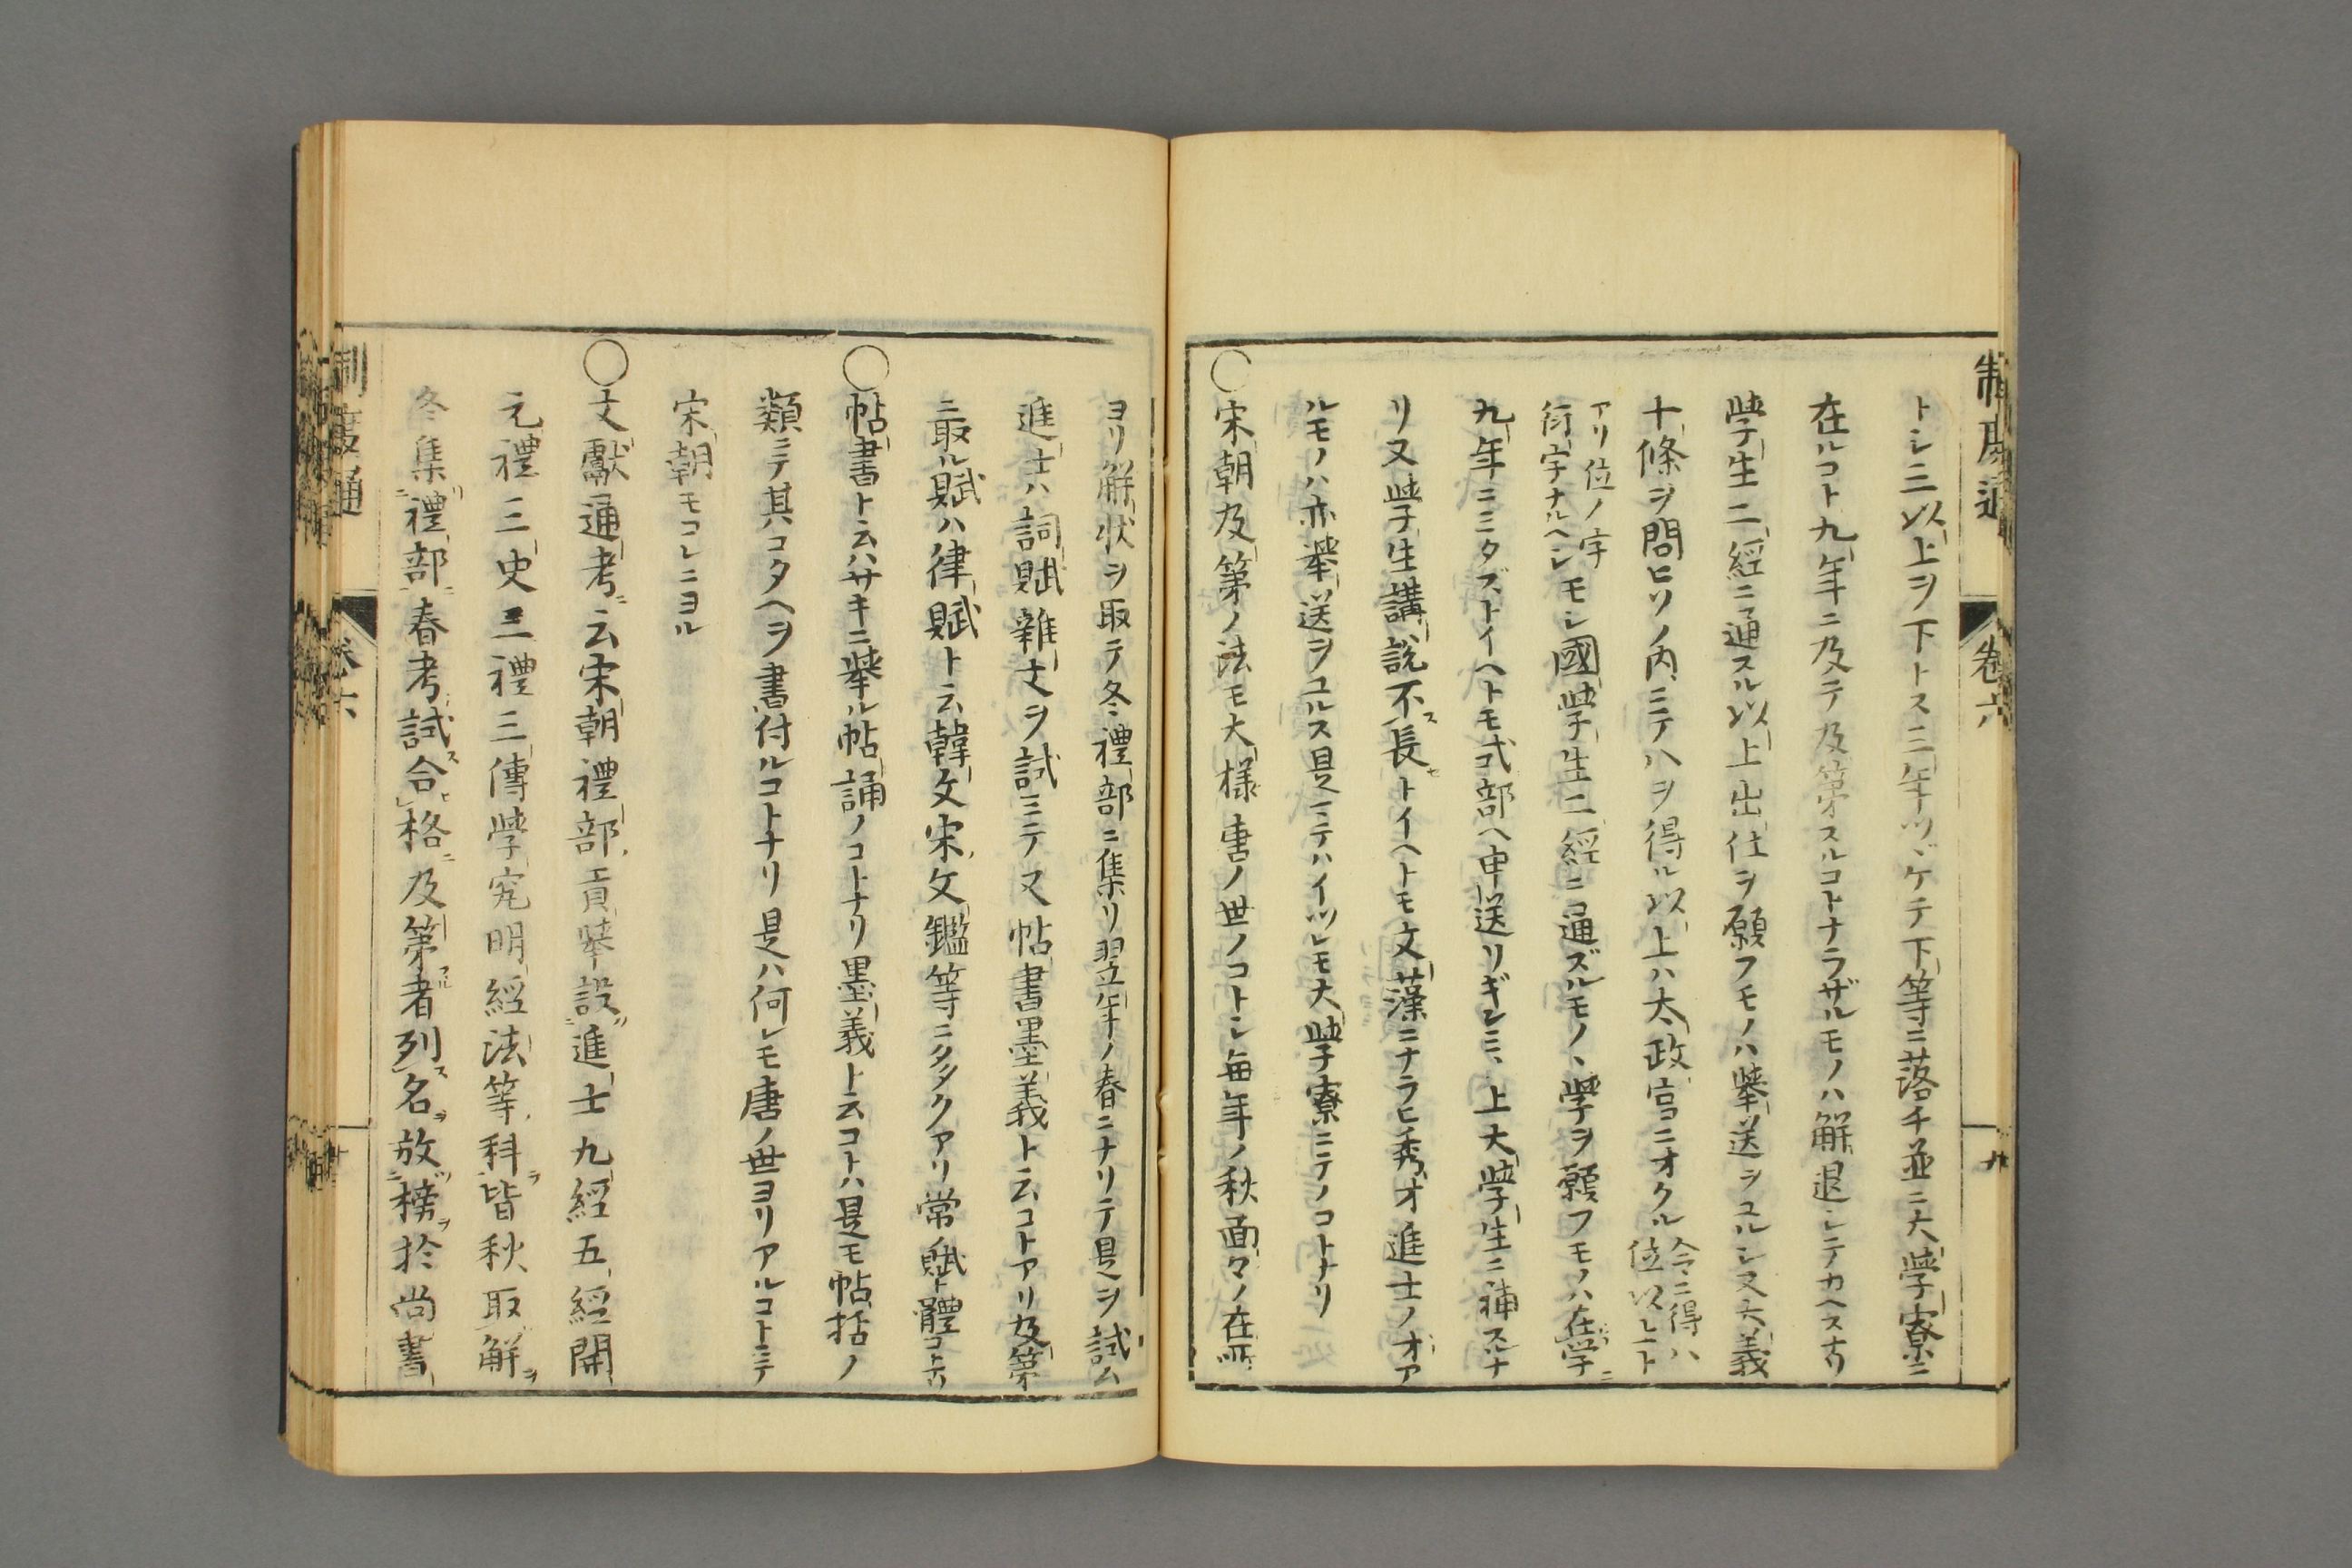 制度通 卷六 九
トシ三以上ヲ下トス三年ツヾケテ下等ニ落チ並ニ大学寮ニ
在ルコト九年ニ及テ及第スルコトナラザルモノハ解退シテカヘスナリ
学生二經ニ通スル以上出仕ヲ願フモノハ挙送ヲユルシ又大義
十條ヲ問ヒソノ内ニテ八ヲ得ル以上ハ太政官ニオクル令ニ得ハ位以上ト
アリ位ノ字衍字ナルヘシモシ國学生二經ニ通ズルモノヽ学ヲ願フモノハ在学
九年ニミタズトイヘトモ式部ヘ申送リギンミヽ上大学生ニ補スルナ
リ又学生講説不長トイヘトモ文藻ニナラヒ秀才進士ノオア
ルモノハ亦挙送ヲユルス是ニテハイツレモ大学寮ニテノコトナリ
○宋朝及第ノ法モ大様唐ノ世ノコトシ毎年ノ秋面々ノ在所
ヨリ解状ヲ取テ冬禮部ニ集リ翌年ノ春ニナリテ是ヲ試ム
進士ハ詞賦雜文ヲ試ミテ又帖書墨義ト云コトアリ及第
ニ取ル賦ハ律賦ト云韓文宋文鑑等ニ多クアリ常ノ賦ト體コトナリ
○帖書ト云ハサキニ挙ル帖誦ノコトナリ墨義ト云コトハ是モ帖括ノ
類ニテ其コタヘヲ書付ルコトナリ是ハ何レモ唐ノ世ヨリアルコトニテ
宋朝モコレニヨル
○文獻通考ニ云宋朝禮部貢挙設進士九經五經開
元禮三史三禮三傳学究明經法等科皆秋取解
冬集禮部春考試合格及第者列名放榜於尚書
制度通 卷六 十